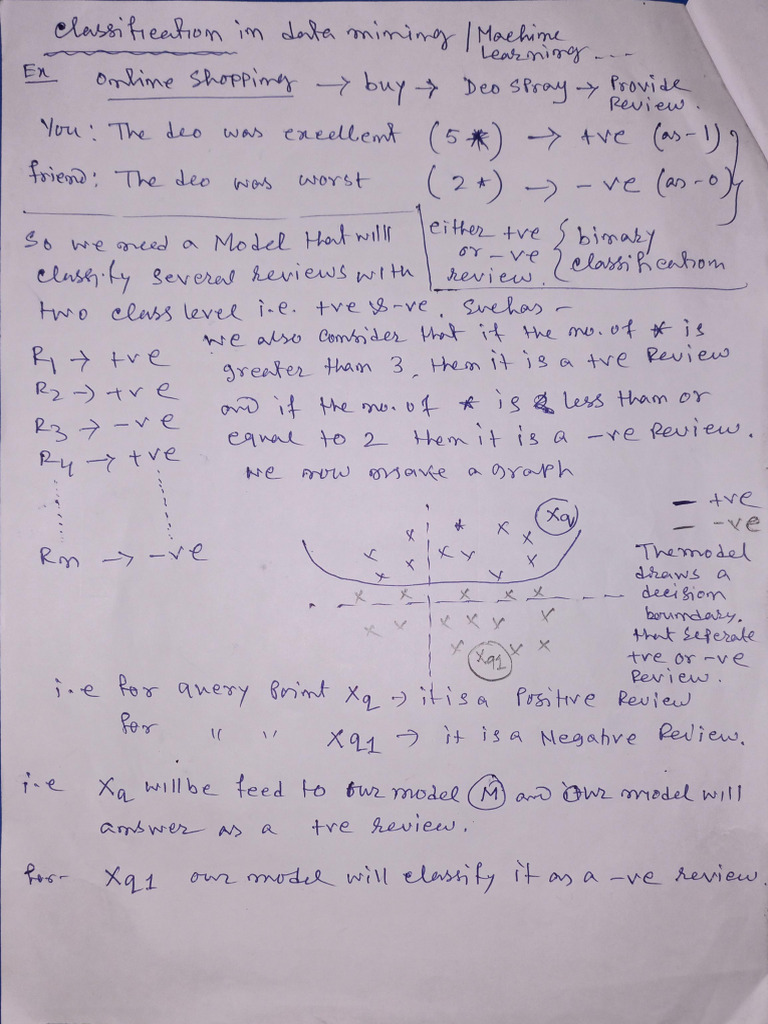 Classification in data mining / Machine
Learning ...
Ex Online Shopping → buy → Deo Spray → Provide
Review.
You: The deo was excellent (5 *) → +ve (as-1)
friend: The deo was worst (2 *) → -ve (as-0)
So we need a Model that will
classify several reviews with
either +ve
or -ve
review.
binary
classification
two class level i.e. +ve & -ve. Suchas -
R1 → +ve
R2 → +ve
R3 → -ve
R4 → +ve
Rn → -ve
we also consider that if the no. of * is
greater than 3, then it is a +ve Review
and if the no. of * is less than or
equal to 2 then it is a -ve Review.
we now make a graph
Xq
Xq1
- +ve
- -ve
The model
draws a
decision
boundary.
that seperate
+ve or -ve
Review.
i.e for query Point Xq → it is a Positive Review
for " " Xq1 → it is a Negative Review.
i.e Xq will be feed to our model M and Our model will
answer as a +ve review.
for- Xq1 our model will classify it as a -ve review.